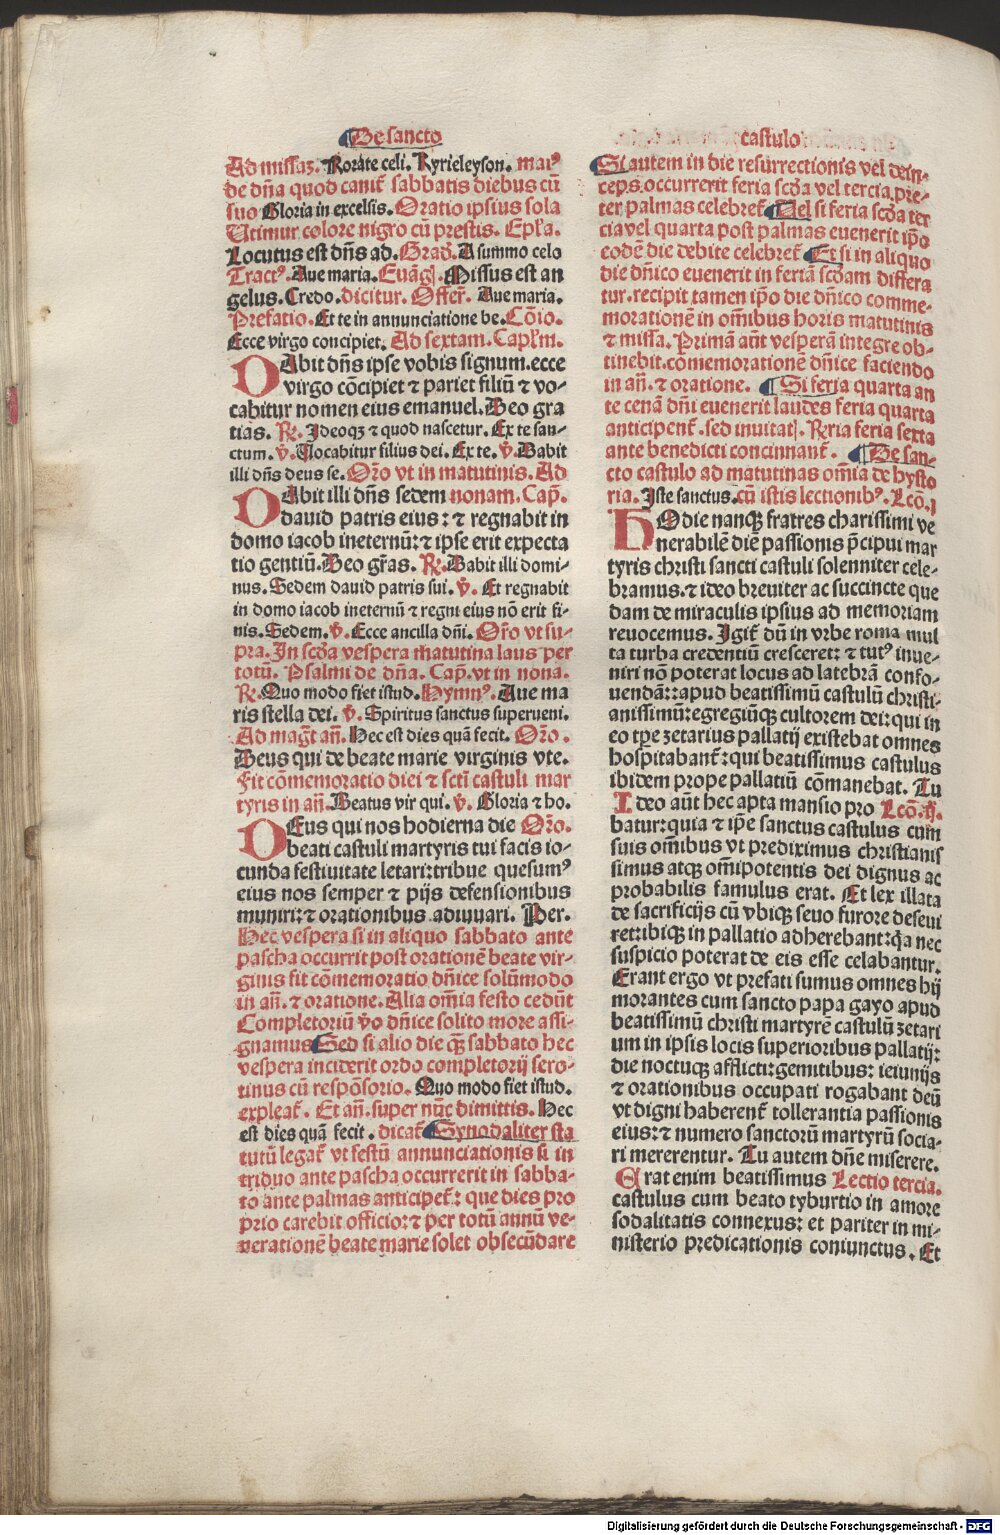 De sancto
Ad missaꝫ. Rorate celi. Kyrieleyson. maiꝰ
de dn̄a quod canit᷑ sabbatis diebus cū
suo Gloria in excelsis. Oratio ipsius sola
Utimur colore nigro cū prestis. Ep̄la.
Locutus est dn̄s ad. Grad̄. A summo celo
Tractꝰ. Aue maria. Euāgl̄. Missus est an
gelus. Credo. dicitur. Offer̄. Aue maria.
Prefatio. Et te in annunciatione be. Cōio.
Ecce virgo concipiet. Ad sextam. Cap̄lm.
DAbit dn̄s ipse vobis signum. ecce
virgo cōcipiet ⁊ pariet filiū ⁊ vo-
cabitur nomen eius emanuel. Deo gra
tias. ℟. Ideoqꝫ ⁊ quod nascetur. Ex te san-
ctum. ℣. Uocabitur filius dei. Ex te. ℣. Dabit
illi dn̄s deus se. Or̄o vt in matutinis. Ad
DAbit illi dn̄s sedem nonam. Cap̄.
dauid patris eius: ⁊ regnabit in
domo iacob ineternū: ⁊ ipse erit expecta
tio gentiū. Deo gr̄as. ℟. Dabit illi domi-
nus. Sedem dauid patris sui. ℣. Et regnabit
in domo iacob ineternū ⁊ regni eius nō erit fi-
nis. Sedem. ℣. Ecce ancilla dn̄i. Or̄o vt su-
pra. In scd̄a vespera matutina laus per
totū. Psalmi de dn̄a. Cap̄. vt in nona.
℟. Quo modo fiet istud. Hymnꝰ. Aue ma
ris stella dei. ℣. Spiritus sanctus superueni.
Ad mag̅t an̄. Hec est dies quā fecit. Or̄o.
Deus qui de beate marie virginis vte.
Fit cōmemoratio diei ⁊ sct̄i castuli mar
tyris in an̄. Beatus vir qui. ℣. Gloria ⁊ ho.
DEus qui nos hodierna die Or̄o.
beati castuli martyris tui facis io-
cunda festiuitate letari: tribue quesumꝰ
eius nos semper ⁊ pijs defensionibus
muniri: ⁊ orationibus adiuuari. Per.
Hec vespera si in aliquo sabbato ante
pascha occurrit post orationē beate vir-
ginis fit cōmemoratio dn̄ice solūmodo
in an̄. ⁊ oratione. Alia om̄ia festo cedūt
Completoriū v̄o dn̄ice solito more assi-
gnamus Sed si alio die qꝫ̄ sabbato hec
vespera inciderit ordo completorij sero-
tinus cū respōsorio. Quo modo fiet istud.
expleat᷑. Et an̄. super nūc dimittis. Hec
est dies quā fecit. dicat᷑ Synodaliter sta
tutū legat᷑ vt festū annunciationis si in
triduo ante pascha occurrerit in sabba-
to ante palmas anticipet᷑: que dies pro
prio carebit officio: ⁊ per totū annū ve-
nerationē beate marie solet obsecūdare
castulo
Si autem in die resurrectionis vel dein-
ceps. occurrerit feria scd̄a vel tercia. pre-
ter palmas celebret᷑ Uel si feria scd̄a ter
cia vel quarta post palmas euenerit ip̄o
eodē die debite celebret᷑ Et si in aliquo
die dn̄ico euenerit in feriā scd̄am differa
tur. recipit tamen ip̄o die dn̄ico comme-
morationē in om̄ibus horis matutinis
⁊ missa. Primā aūt vesperā integre ob-
tinebit. comemorationē dn̄ice faciendo
in an̄. ⁊ oratione. Si feria quarta an
te cenā dn̄i euenerit laudes feria quarta
anticipent᷑. sed inuitatꝭ. ℟ria feria sexta
ante benedicti concinnant᷑. De san-
cto castulo ad matutinas om̄ia de hysto
ria. Iste sanctus. cū istis lectionibꝰ. Lcō. j
HOdie nanqꝫ fratres charissimi ve
nerabilē diē passionis p̄cipui mar
tyris christi sancti castuli solenniter cele-
bramus. ⁊ ideo breuiter ac succincte que
dam de miraculis ipsius ad memoriam
reuocemus. Igit᷑ dū in vrbe roma mul
ta turba credentiū cresceret: ⁊ tutꝰ inue-
niri nō poterat locus ad latebrā confo-
uendā: apud beatissimū castulū christi-
anissimū: egregiūqꝫ cultorem dei: qui in
eo tp̄e zetarius pallatij existebat omnes
hospitabant᷑: qui beatissimus castulus
ibidem prope pallatiū cōmanebat. Tu
Ideo aūt hec apta mansio pro Lcō. ij.
batur: quia ⁊ ip̄e sanctus castulus cum
suis om̄ibus vt prediximus christianis
simus atqꝫ om̄ipotentis dei dignus ac
probabilis famulus erat. Et lex illata
de sacrificijs cū vbiqꝫ seuo furore deseui
ret: ibiqꝫ in pallatio adherebant: q̄a nec
suspicio poterat de eis esse celabantur.
Erant ergo vt prefati sumus omnes hij
morantes cum sancto papa gayo apud
beatissimū christi martyrē castulū zetari
um in ipsis locis superioribus pallatij:
die noctuqꝫ afflicti: gemitibus: ieiunijs
⁊ orationibus occupati rogabant deū
vt digni haberent᷑ tollerantia passionis
eius: ⁊ numero sanctorū martyrū socia-
ri mererentur. Tu autem dn̄e miserere.
Erat enim beatissimus Lectio tercia.
castulus cum beato tyburtio in amore
sodalitatis connexus: et pariter in mi-
nisterio predicationis coniunctus. Et
Digitalisierung gefördert durch die Deutsche Forschungsgemeinschaft - DFG